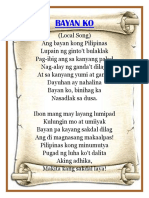 BAYAN KO
(Local Song)
Ang bayan kong Pilipinas
Lupain ng ginto't bulaklak
Pag-ibig ang sa kanyang palad
Nag-alay ng ganda't dilag
At sa kanyang yumi at ganda
Dayuhan ay nahalina
Bayan ko, binihag ka
Nasadlak sa dusa.
Ibon mang may layang lumipad
Kulungin mo at umiiyak
Bayan pa kayang sakdal dilag
Ang di magnasang makaalpas!
Pilipinas kong minumutya
Pugad ng luha ko't dalita
Aking adhika,
Makita kang sakdal laya!